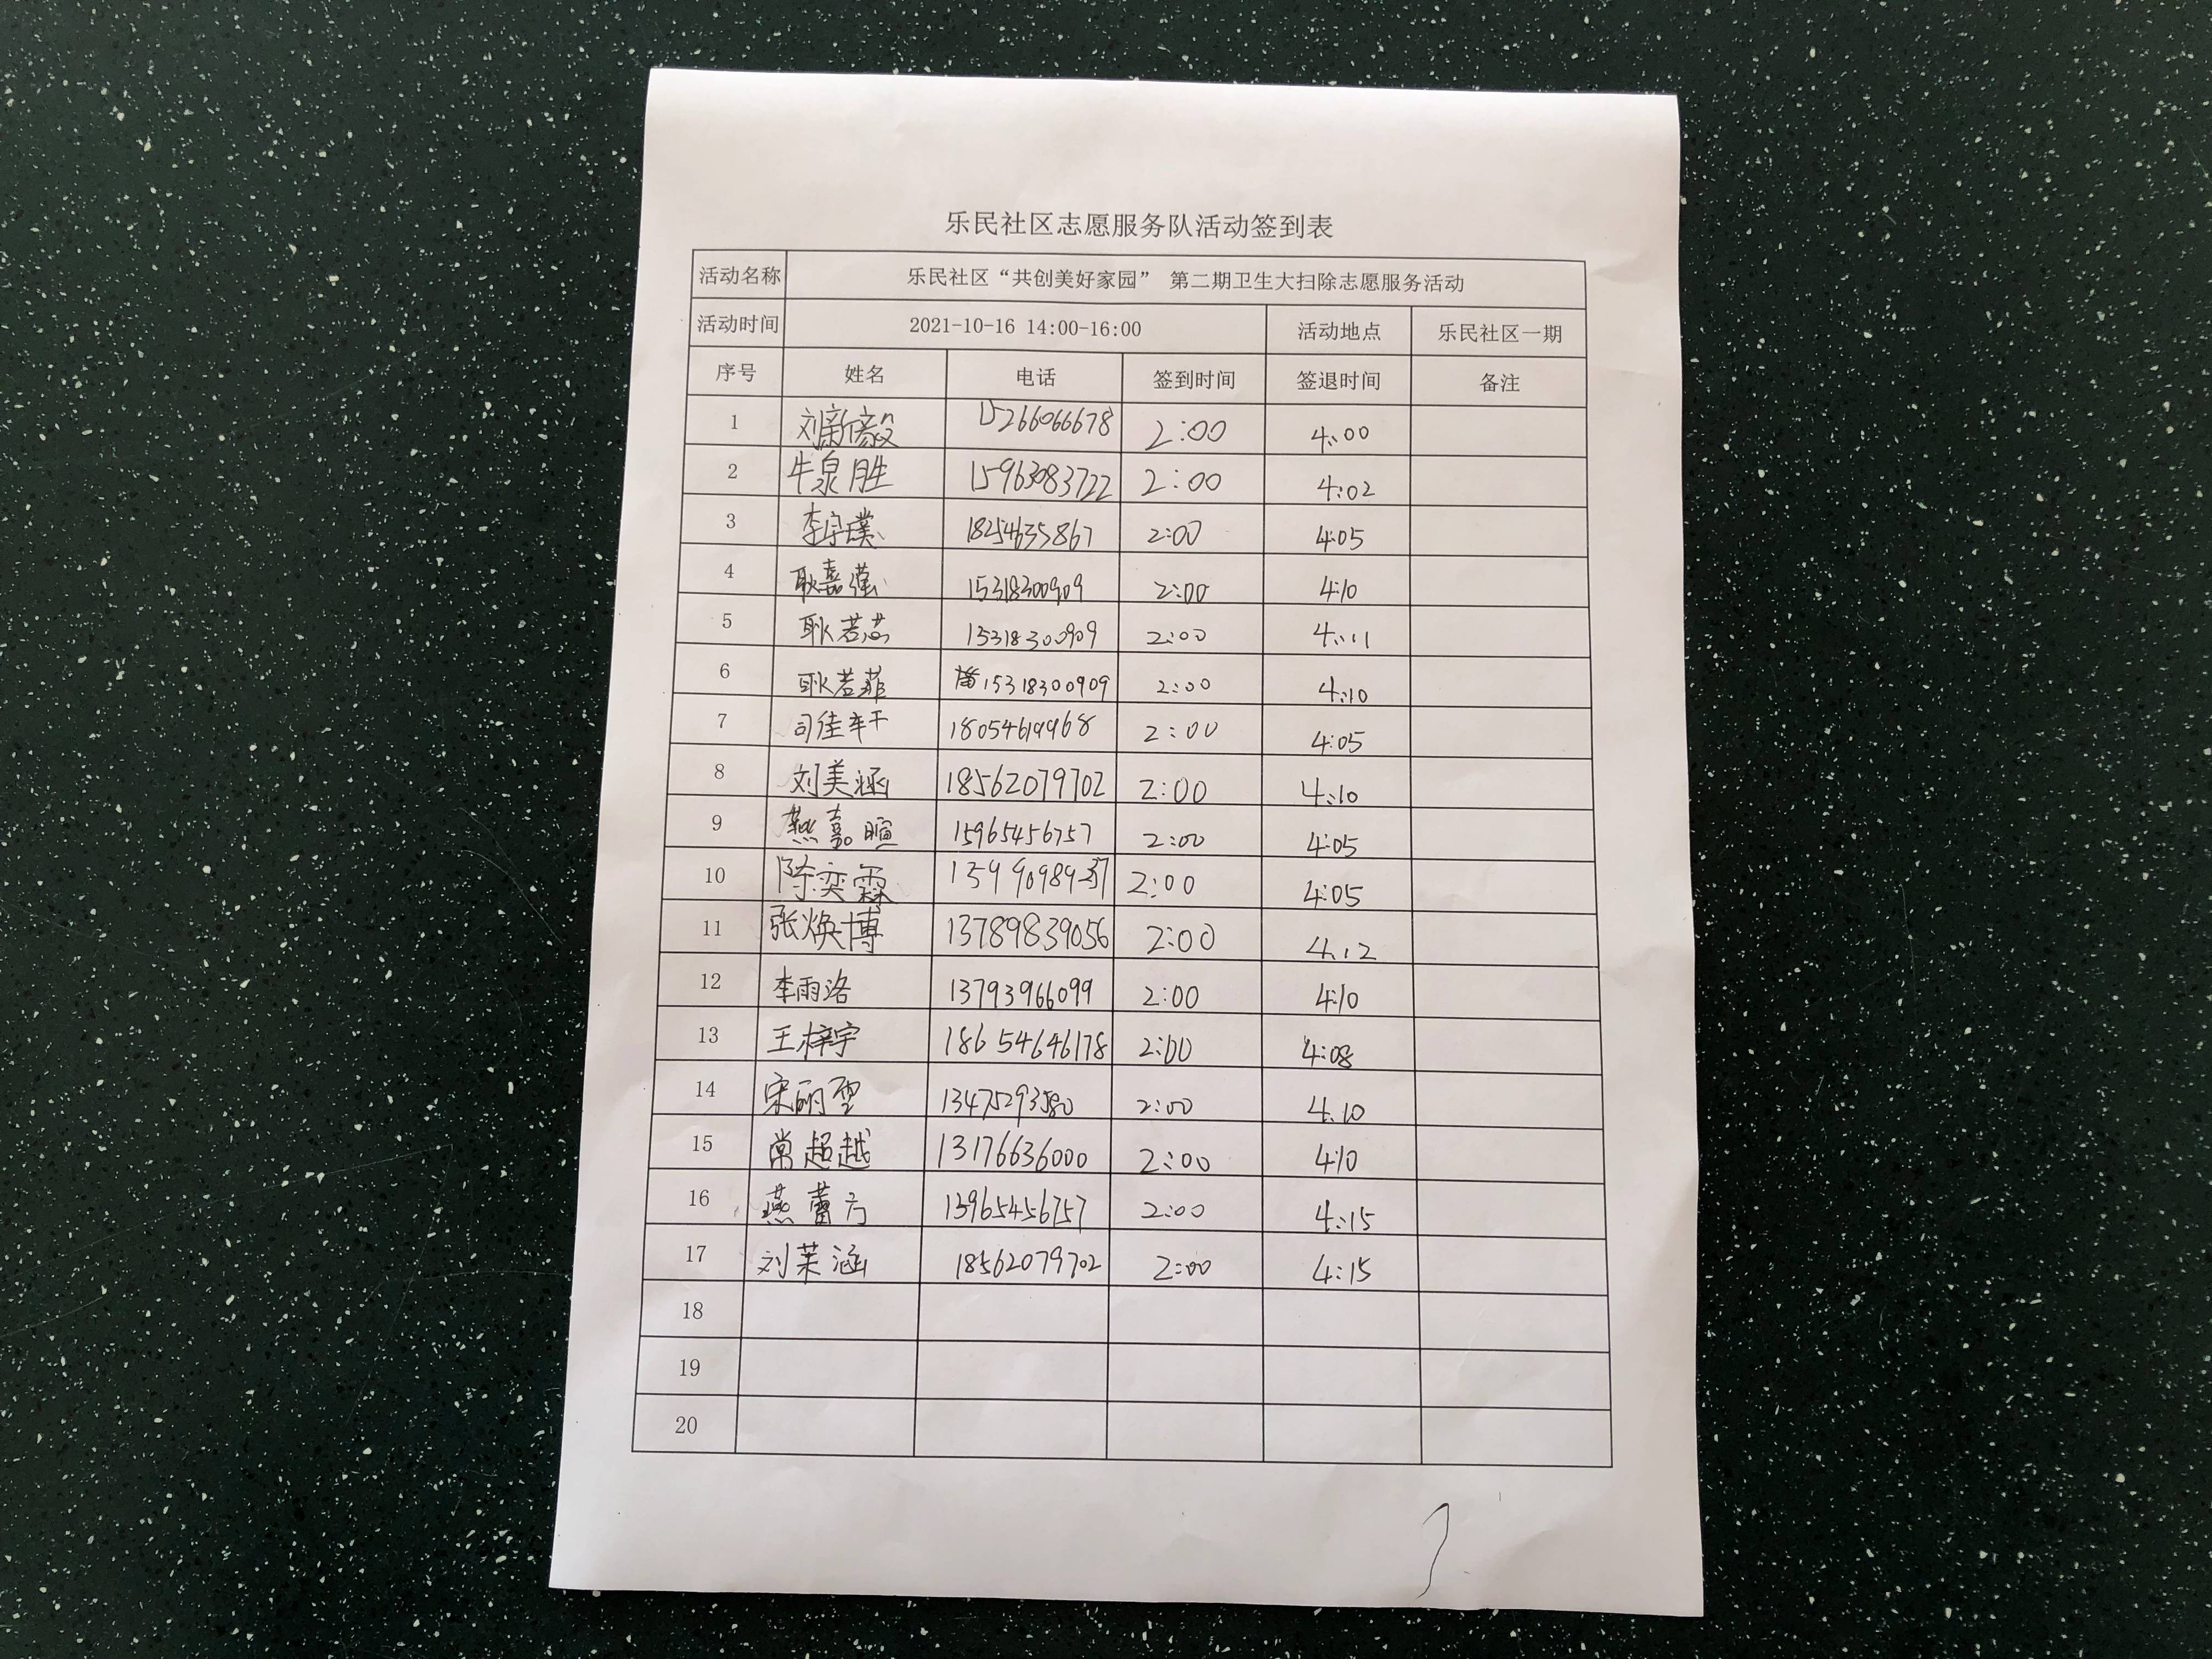 乐民社区志愿服务队活动签到表
活动名称 乐民社区“共创美好家园” 第二期卫生大扫除志愿服务活动
活动时间 2021-10-16 14:00-16:00 活动地点 乐民社区一期
序号 姓名 电话 签到时间 签退时间 备注
1 刘新毅 15266066678 2:00 4:00
2 牛泉胜 15963083722 2:00 4:02
3 李宇璞 18254635867 2:00 4:05
4 耿嘉 15318300909 2:00 4:10
5 耿若芯 15318300909 2:00 4:11
6 耿若菲 15318300909 2:00 4:10
7 司佳轩 18054619968 2:00 4:05
8 刘美涵 18562079702 2:00 4:10
9 燕嘉暄 15965456757 2:00 4:05
10 陈奕霖 2:00 4:05
11 张焕博 13789839056 2:00 4:12
12 李雨洛 13793966099 2:00 4:10
13 王梓宇 18654646178 2:00 4:08
14 宋丽 13475293580 2:00 4:10
15 常超越 13176636000 2:00 4:10
16 燕蕾 13965456757 2:00 4:15
17 刘茉涵 18562079702 2:00 4:15
18
19
20